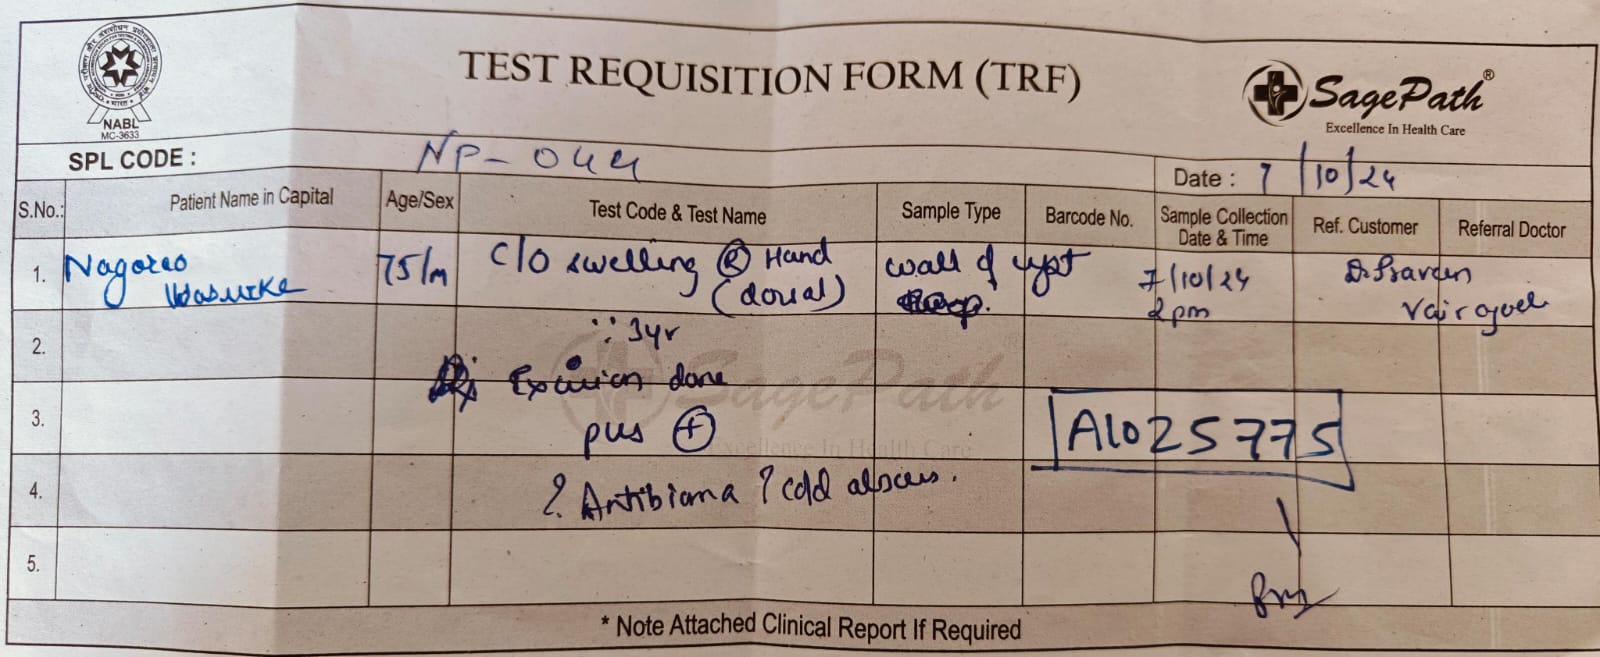 TEST REQUISITION FORM (TRF)
NABL
MC-3633
SagePath®
Excellence In Health Care
SPL CODE : NP-044
Date : 7/10/24
S.No.: Patient Name in Capital Age/Sex Test Code & Test Name Sample Type Barcode No. Sample Collection Date & Time Ref. Customer Referral Doctor
1. Nagorao 75/m C/O swelling Ⓡ Hand wall of cyst 7/10/24 Dr Praveen
(dorsal) 2pm
2. ∵ 3yr
Excision done
3. pus ⊕ A1025775
4. ? Antibioma ? cold abscess.
5.
SagePath
Excellence In Health Care
* Note Attached Clinical Report If Required